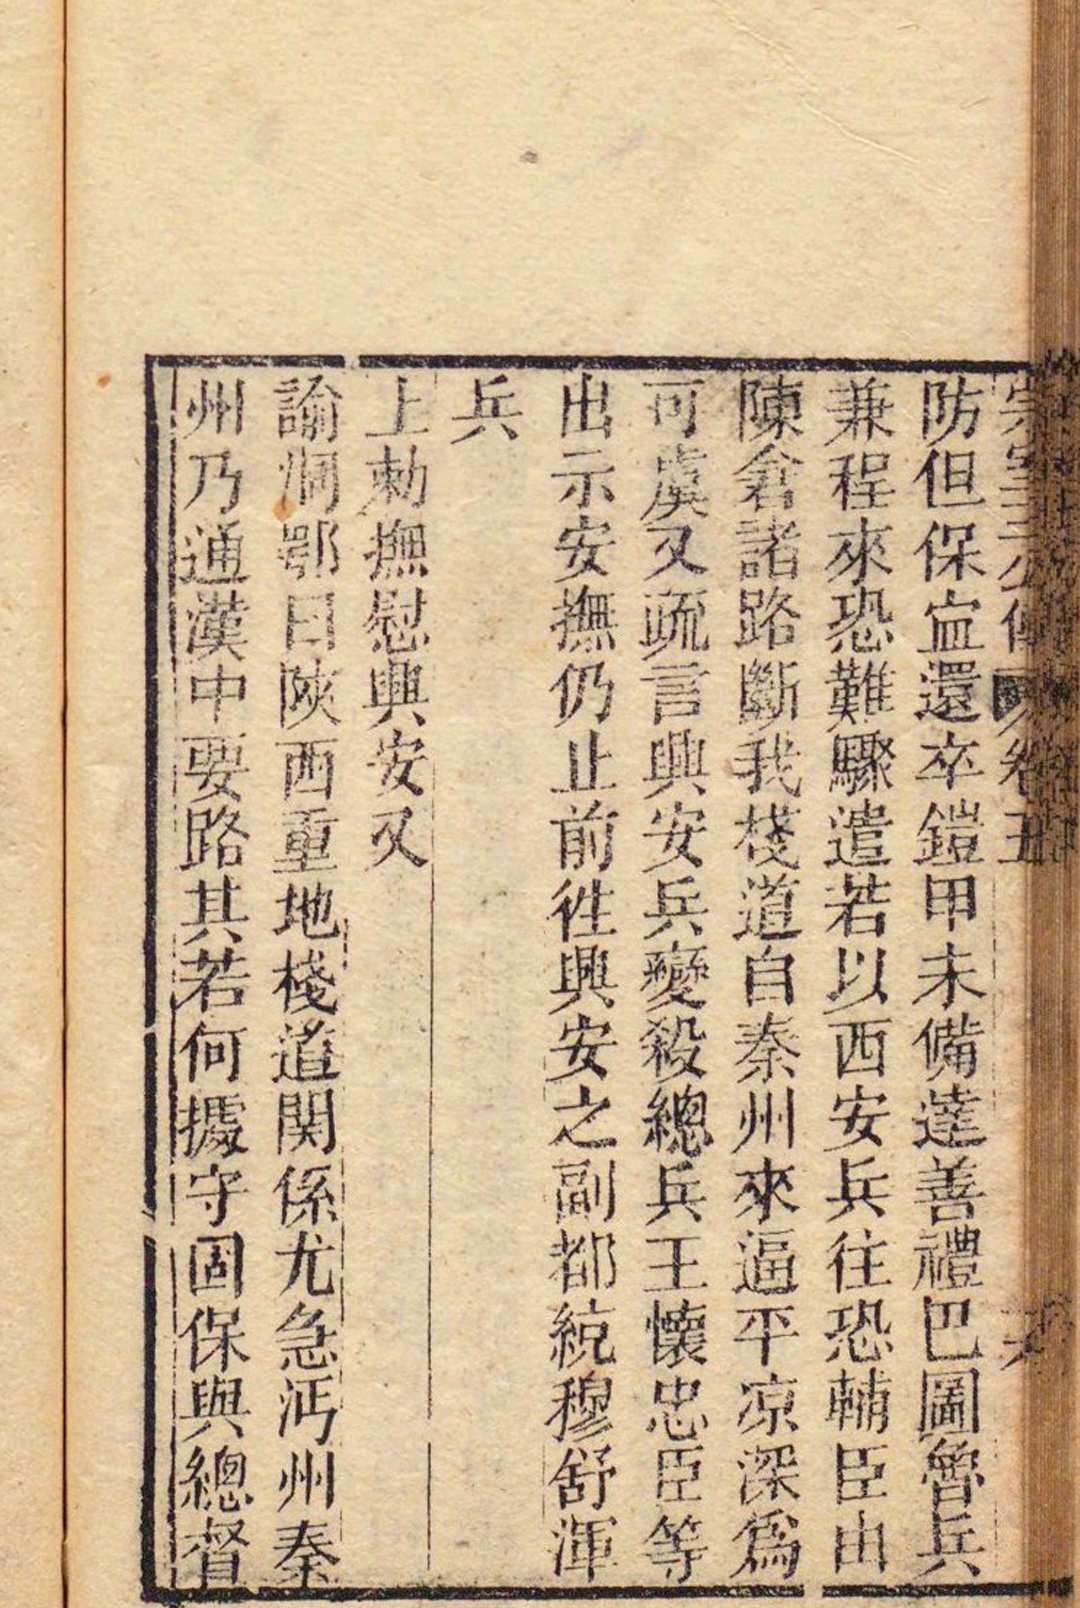 宗室王公傳 卷五 六
防但保寍還卒鎧甲未備達善禮巴圖魯兵
兼程來恐難驟遣若以西安兵往恐輔臣由
陳倉諸路斷我棧道自秦州來逼平凉深爲
可虞又疏言興安兵變殺總兵王懷忠臣等
出示安撫仍止前徃興安之副都統穆舒渾
兵
上勅撫慰興安又
諭洞鄂曰陜西重地棧道関係尤急沔州秦
州乃通漢中要路其若何據守固保與總督